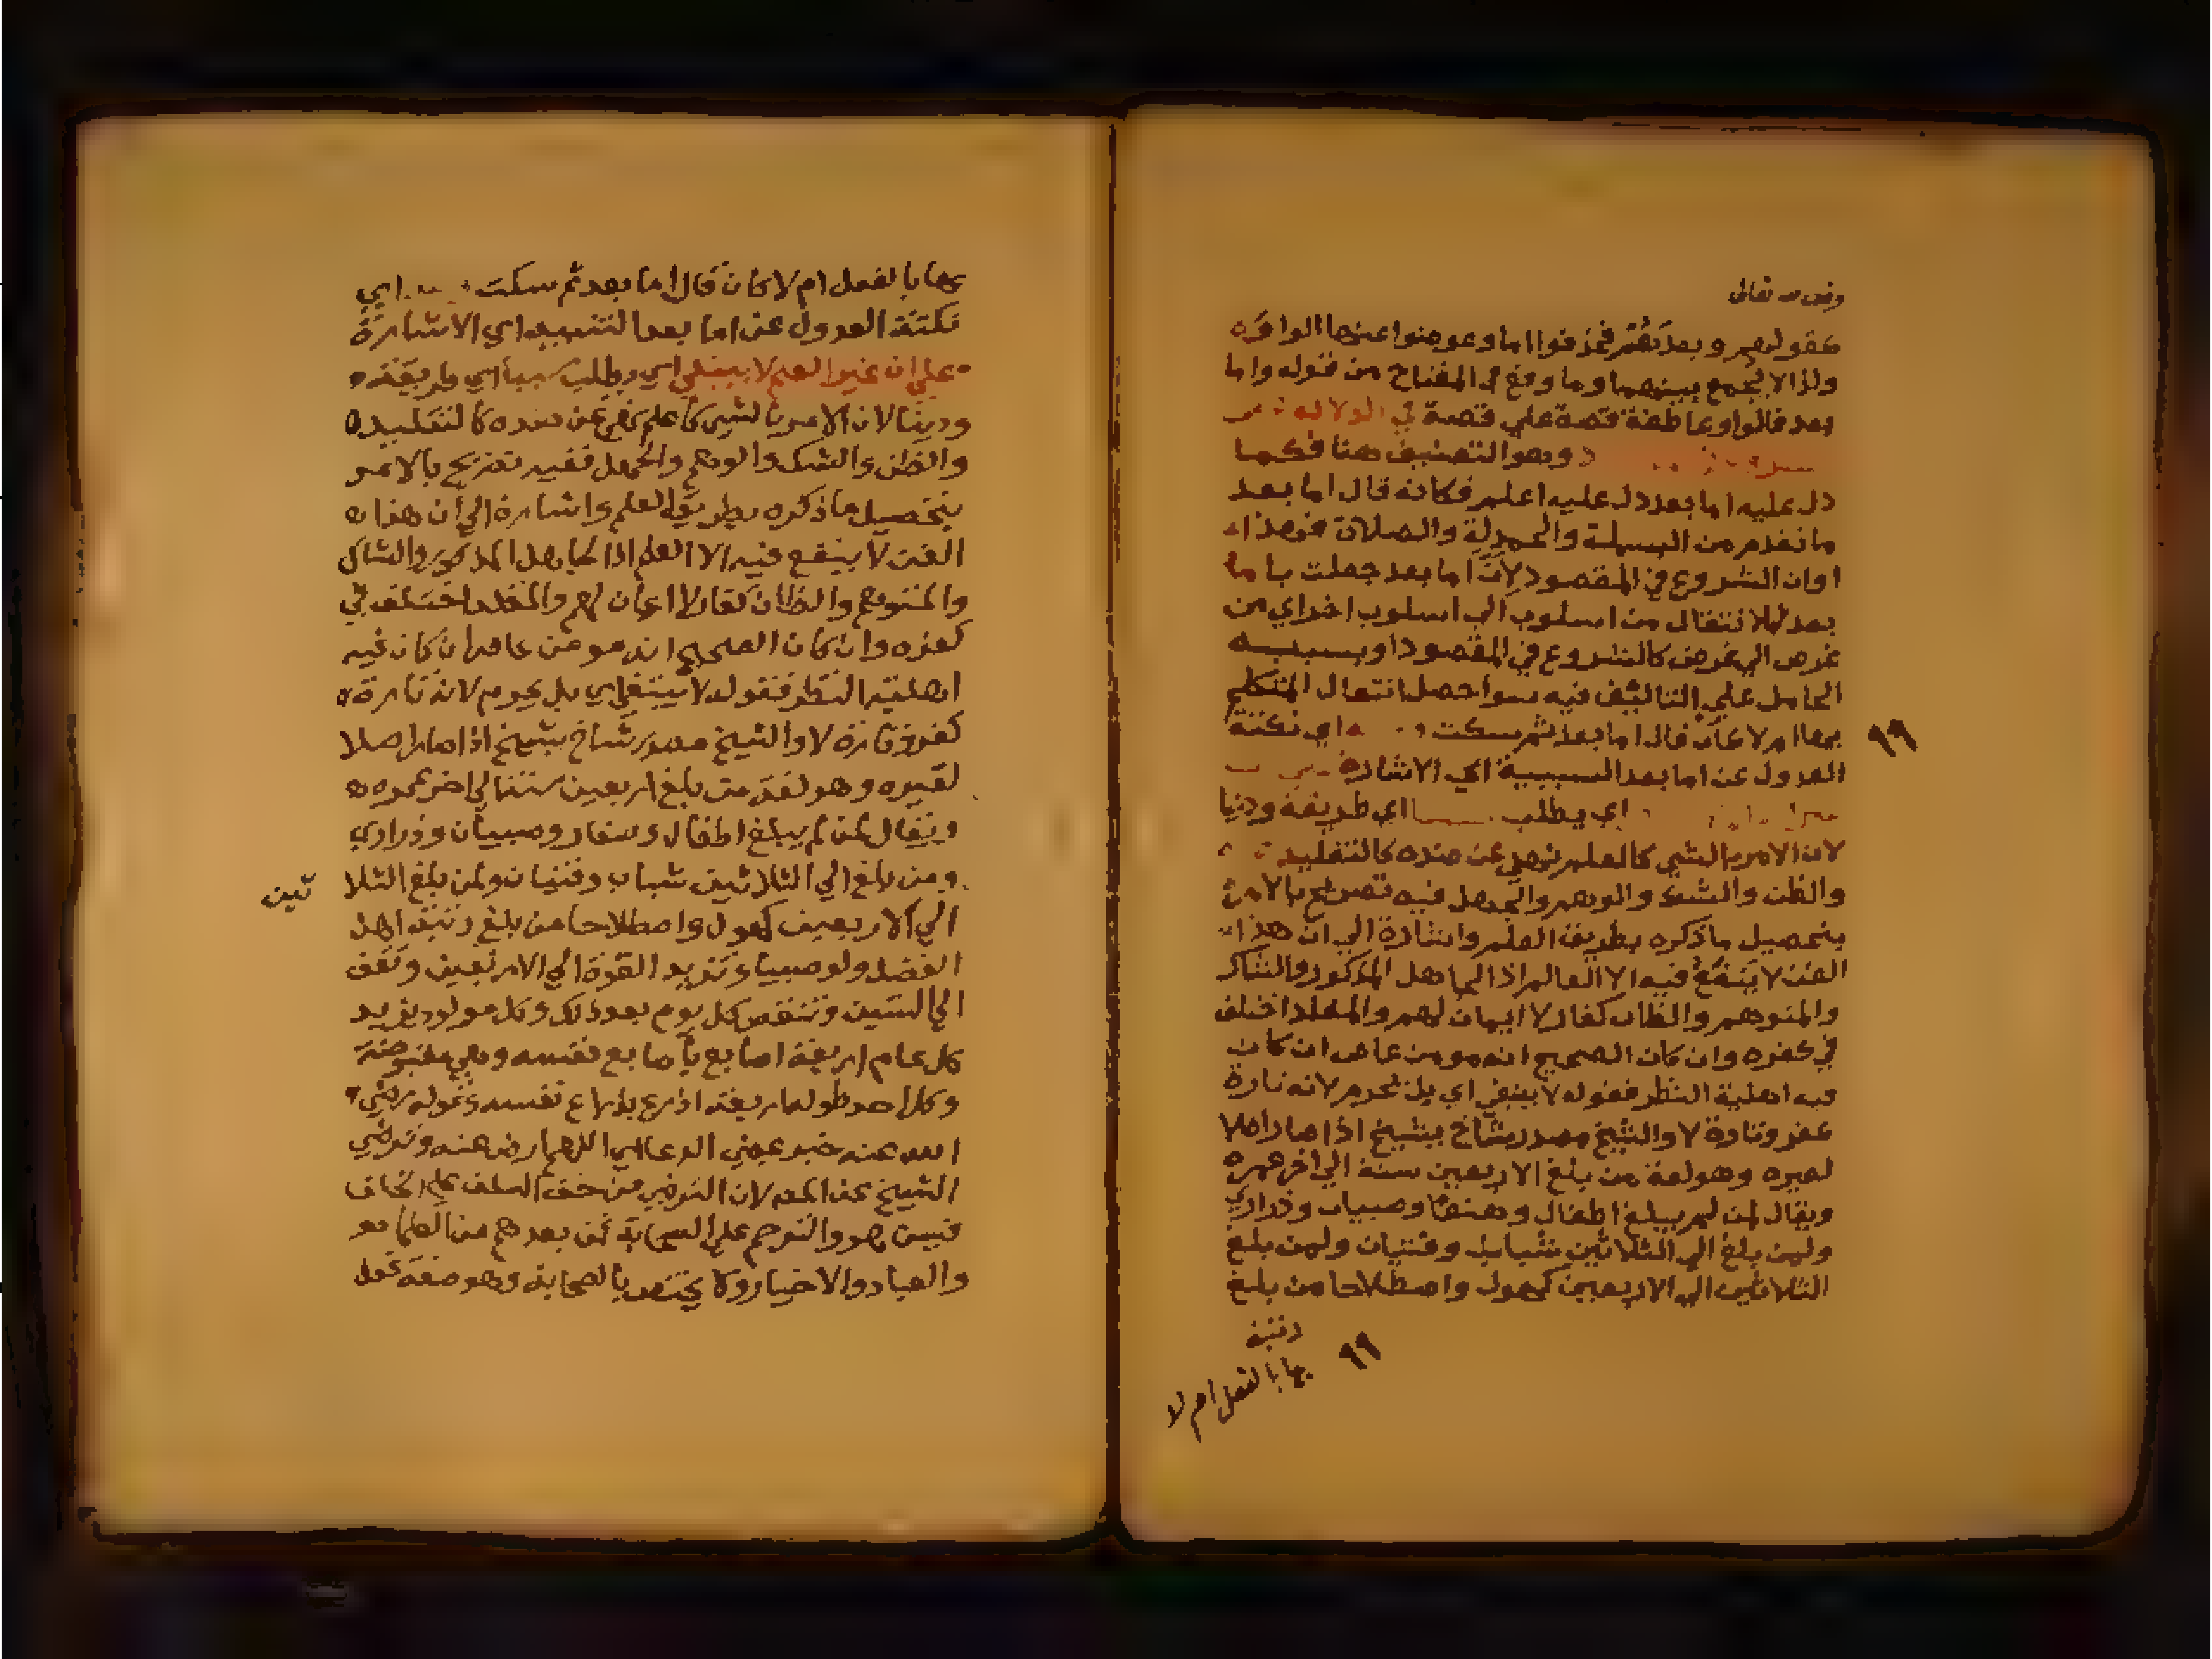 وقف لله تعالى
عقولهم وبعد فحذفوا اما وعوضوا عنها الواو
ولذا لا يجمع بينهما وما وقع في المفتاح من قوله واما
بعد فالواو عاطفة قصة على قصة في
وهو التصنيف هنا فكما
دل عليه اما بعد دل عليه اعلم فكانه قال اما بعد
ما تقدم من البسملة والحمدلة والصلاة فهذا
اوان الشروع في المقصود لان اما بعد جعلت
بعد للانتقال من اسلوب الى اسلوب اخر اي من
غرض الي غرض كالشروع في المقصود او بسببه
الحامل علي التاليف فيه سوا حصل انتقال المتكلم
بها ام لا كان قال اما بعد ثم سكت اي نكتة
العدول عن اما بعد السببية اي الاشارة
اي يطلب اي طريقة ودينا
لان الامر بالشي كالعلم نهي عن ضده كالتقليد
والظن والشك والوهم والجهل فيه تصريح بالامر
بتحصيل ما ذكره بطريق العلم واشارة الي ان هذا
الفن لا ينفع فيه الا العالم اذ الجاهل المذكور والشاك
والمتوهم والظان كفار لا ايمان لهم والمقلد اختلف
في كفره وان كان الصحيح انه مومن عاص ان كان
فيه اهلية النظر فقوله لا ينبغي اي بل يحرم لانه تارة
كفر وتارة لا والشيخ مصدر شاخ يشيخ اذا صار اصلا
لغيره وهو لغة من بلغ الاربعين سنة الي اخر عمره
ويقال لمن لم يبلغ اطفال وصبيان وذراري
ولمن بلغ الي الثلاثين شباب وفتيان ولمن بلغ
الثلاثين الي الاربعين كهول واصطلاحا من بلغ
رتبة
٩٩
بها بالفعل ام لا
٩٩
بها بالفعل ام لا كان قال اما بعد ثم سكت اي
نكتة العدول عن اما بعد السببية اي الاشارة
علي ان غير العلم لا ينبغي اي يطلب سببا اي طريقة
ودينا لان الامر بالشي كالعلم نهي عن ضده كالتقليد
والظن والشك والوهم والجهل ففيه تصريح بالامر
بتحصيل ما ذكره بطريق العلم واشارة الي ان هذا
الفن لا ينفع فيه الا العلم اذ الجاهل المذكور والشاك
والمتوهم والظان كفار لا ايمان لهم والمقلد اختلف في
كفره وان كان الصحيح انه مومن عاص ان كان فيه
اهلية النظر فقوله لا ينبغي اي بل يحرم لانه تارة
كفر وتارة لا والشيخ مصدر شاخ يشيخ اذا صار اصلا
لغيره وهو لغة من بلغ اربعين سنة الي اخر عمره
ويقال لمن لم يبلغ اطفال وصغار وصبيان وذراري
ومن بلغ الي الثلاثين شباب وفتيان ولمن بلغ الثلا
ثين
الي الاربعين كهول واصطلاحا من بلغ رتبة اهل
الفضل ولو صبيا وتزيد القوة الي الاربعين وتقف
الي الستين وتنقص كل يوم بعد ذلك وكل مولود يزيد
كل عام اربعة اصابع باصابع نفسه وهي مقبوضة
وكل احد طوله اربعة اذرع بذراع نفسه وقوله رضي
الله عنه خبر بمعني الدعا اي اللهم ارض عنه وترضي
الشيخ عن المص لان الترضي من حق السلف علي الخلف
فيسن هو والترحم علي الصحابة فمن بعدهم من العلما
والعباد والاخيار ولا يختص بالصحابة وهو صفة فعل